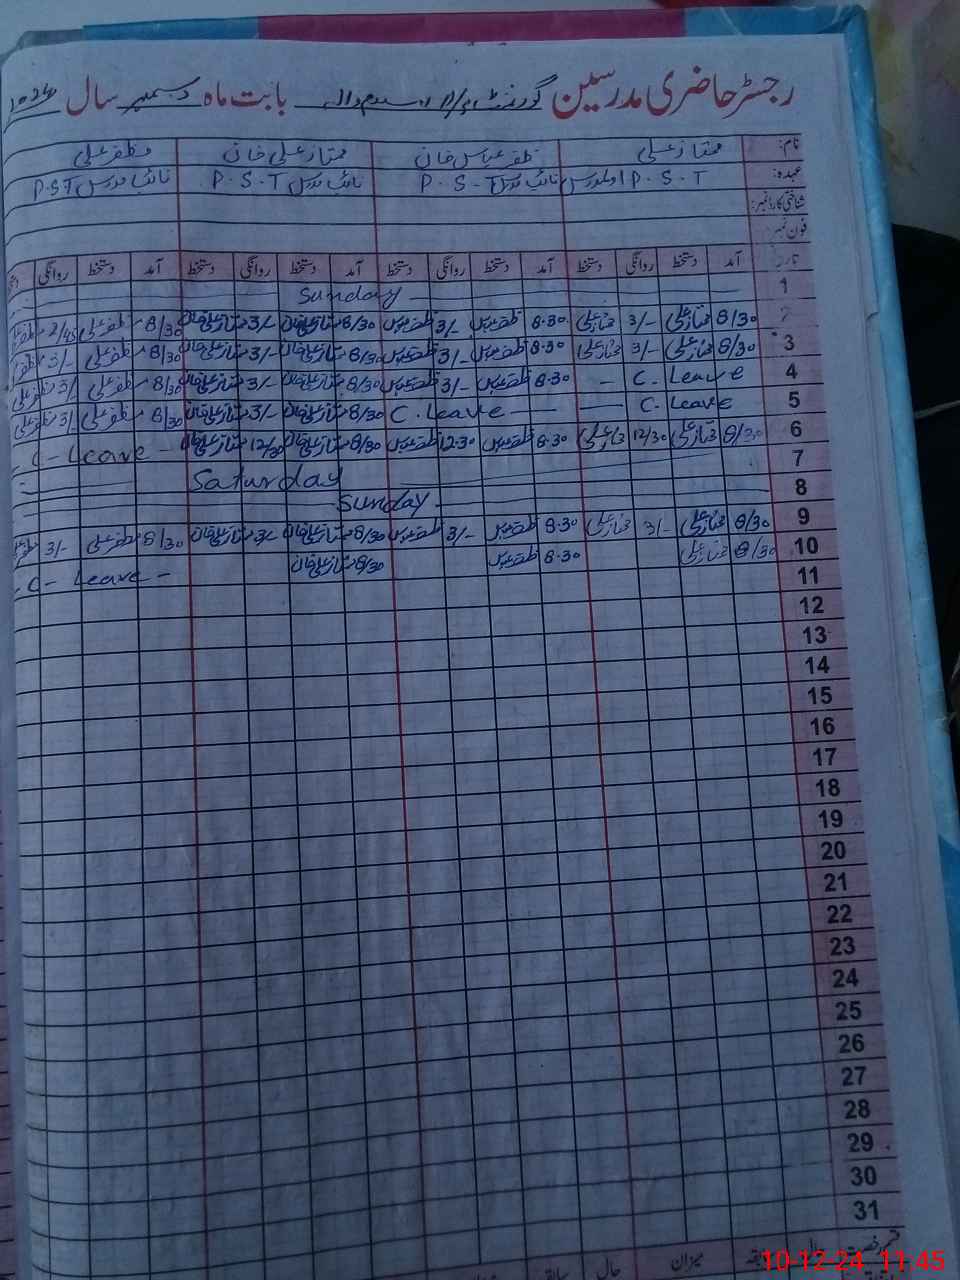 رجسٹر حاضری مدرسین گورنمنٹ بابت ماہ دسمبر سال 2024
نام: ممتاز علی ظفر عباس خان ممتاز علی خان مظفر علی
عہدہ: P.S.T اول مدرس P.S.T نائب مدرس P.S.T نائب مدرس P.S.T نائب مدرس
شناختی کارڈ نمبر:
فون نمبر:
تاریخ آمد دستخط روانگی دستخط آمد دستخط روانگی دستخط آمد دستخط روانگی دستخط آمد دستخط روانگی
1 Sunday
2 8/30 ممتاز علی 3/- ممتاز علی 8.30 ظفر عباس 3/- ظفر عباس 8/30 ممتاز علی خان 3/- ممتاز علی خان 8/30 مظفر علی 2/45 مظفر علی
3 8/30 ممتاز علی 3/- ممتاز علی 8.30 ظفر عباس 3/- ظفر عباس 8/30 ممتاز علی خان 3/- ممتاز علی خان 8/30 مظفر علی 3/- مظفر
4 C. Leave — 8.30 ظفر عباس 3/- ظفر عباس 8/30 ممتاز علی خان 3/- ممتاز علی خان 8/30 مظفر علی 3/- مظفر علی
5 C. Leave — C. Leave — 8/30 ممتاز علی خان 3/- ممتاز علی خان 8/30 مظفر علی 3/- مظفر علی
6 8/30 ممتاز علی 12/30 ممتاز علی 8.30 ظفر عباس 12.30 ظفر عباس 8/30 ممتاز علی خان 12/30 ممتاز علی خان - C - Leave -
7 Saturday
8 Sunday
9 8/30 ممتاز علی 3/- ممتاز علی 8.30 ظفر عباس 3/- ظفر عباس 8/30 ممتاز علی خان 3/- ممتاز علی خان 8/30 مظفر علی 3/- مظفر علی
10 8/30 ممتاز علی 8.30 ظفر عباس 8/30 ممتاز علی خان - C - Leave -
11
12
13
14
15
16
17
18
19
20
21
22
23
24
25
26
27
28
29
30
31
قسم رخصت سابقہ حال میزان سابقہ حال
10-12-24 11:45